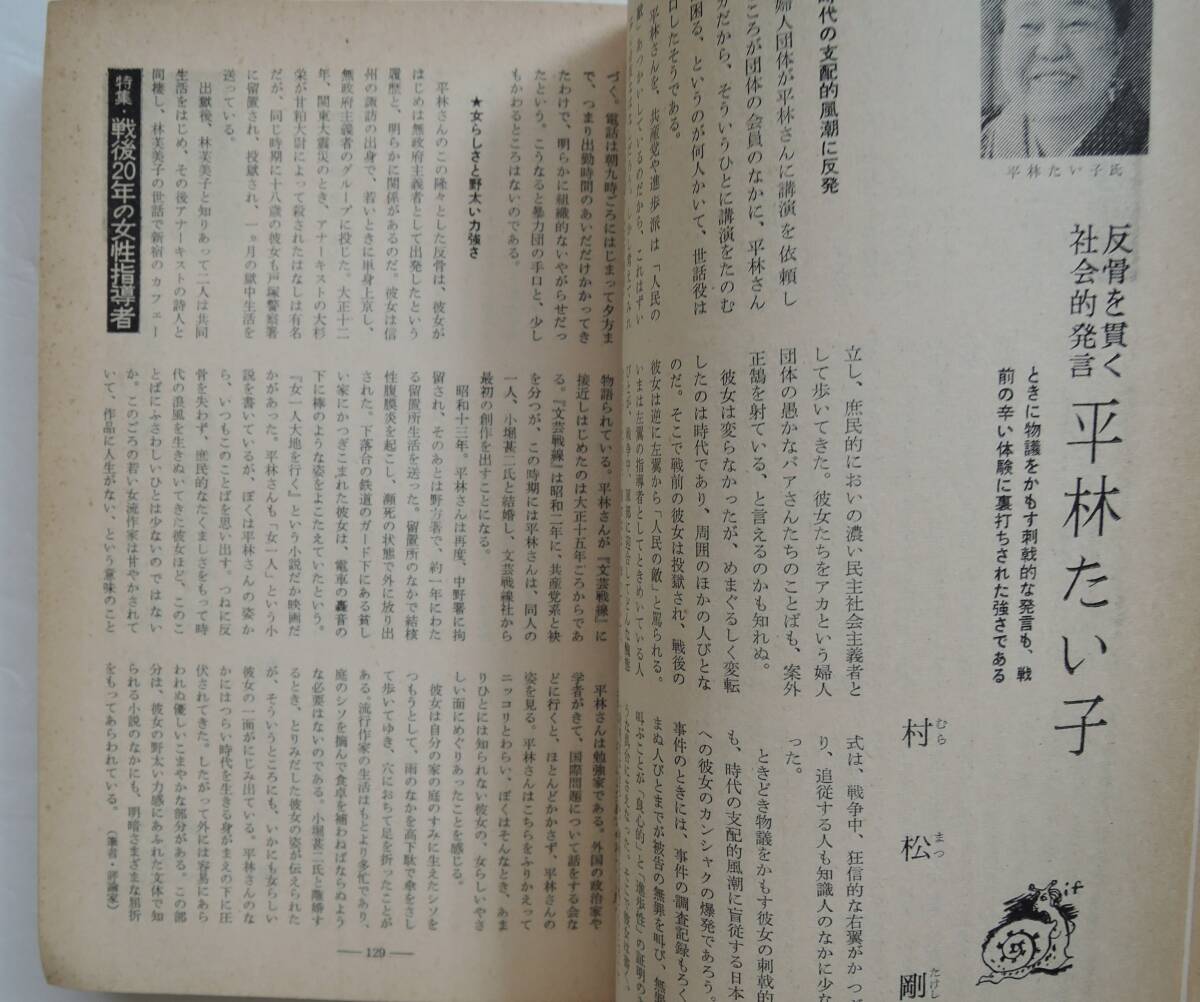 平林たい子氏
反骨を貫く
社会的発言
平林たい子
ときに物議をかもす刺戟的な発言も、戦
前の辛い体験に裏打ちされた強さである
村松剛
むら
まつ
たけし
時代の支配的風潮に反発
婦人団体が平林さんに講演を依頼し
ころが団体の会員のなかに、平林さん
だから、そういうひとに講演をたのむ
困る、というのが何人かいて、世話役は
口したそうである。
平林さんを、共産党や進歩派は「人民の
立し、庶民的においの濃い民主社会主義者と
して歩いてきた。彼女たちをアカという婦人
団体の愚かなバアさんたちのことばも、案外
正鵠を射ている、と言えるのかも知れぬ。
彼女は変らなかったが、めまぐるしく変転
したのは時代であり、周囲のほかの人びとな
のだ。そこで戦前の彼女は投獄され、戦後の
彼女は逆に左翼から「人民の敵」と罵られる。
いまは左翼の指導者としてときめいている人
式は、戦争中、狂信的な右翼がかつ
り、追従する人も知識人のなかに少な
った。
ときどき物議をかもす彼女の刺戟的
も、時代の支配的風潮に盲従する日本
への彼女のカンシャクの爆発であろう。
事件のときには、事件の調査記録もろく
まぬ人びとまでが被告の無罪を叫び、無罪
叫ぶことが「良心的」と「進歩性」の証明の
if
づく。電話は朝九時ごろにはじまって夕方ま
で、つまり出勤時間のあいだだけかかってき
たわけで、明らかに組織的ないやがらせだっ
たという。こうなると暴力団の手口と、少し
もかわるところはないのである。
★女らしさと野太い力強さ
平林さんのこの隆々とした反骨は、彼女が
はじめは無政府主義者として出発したという
履歴と、明らかに関係があるのだ。彼女は信
州の諏訪の出身で、若いときに単身上京し、
無政府主義者のグループに投じた。大正十二
年、関東大震災のとき、アナーキストの大杉
栄が甘粕大尉によって殺されたはなしは有名
だが、同じ時期に十八歳の彼女も戸塚警察署
に留置され、投獄され、一ヶ月の獄中生活を
送っている。
出獄後、林芙美子と知りあって二人は共同
生活をはじめ、その後アナーキストの詩人と
同棲し、林芙美子の世話で新宿のカフェー
特集・戦後20年の女性指導者
物語られている。平林さんが『文芸戦線』に
接近しはじめたのは大正十五年ごろからであ
る。『文芸戦線』は昭和二年に、共産党系と袂
を分つが、この時期には平林さんは、同人の
一人、小堀甚二氏と結婚し、文芸戦線社から
最初の創作を出すことになる。
昭和十三年。平林さんは再度、中野署に拘
留され、そのあとは野方署で、約一年にわた
る留置所生活を送った。留置所のなかで結核
性腹膜炎を起こし、瀕死の状態で外に放り出
された。下落合の鉄道のガード下にある貧し
い家にかつぎこまれた彼女は、電車の轟音の
下に棒のような姿をよこたえていたという。
『女一人大地を行く』という小説だか映画だ
かがあった。平林さんも「女一人」という小
説を書いているが、ぼくは平林さんの姿か
ら、いつもこのことばを思い出す。つねに反
骨を失わず、庶民的なたくましさをもって時
代の浪風を生きぬいてきた彼女ほど、このこ
とばにふさわしいひとは少ないのではない
か。このごろの若い女流作家は甘やかされて
いて、作品に人生がない、という意味のこと
平林さんは勉強家である。外国の政治家や
学者がきて、国際問題について話をする会な
どに行くと、ほとんどかかさず、平林さんの
姿を見る。平林さんはこちらをふりかえって
ニッコリとわらい、ぼくはそんなとき、あま
りひとには知られない彼女の、女らしいやさ
しい面にめぐりあったことを感じる。
彼女は自分の家の庭のすみに生えたシソを
つもうとして、雨のなかを高下駄で傘をさし
て歩いてゆき、穴におちて足を折ったことが
ある。流行作家の生活はもとより多忙であり、
庭のシソを摘んで食卓を補わねばならぬよう
な必要はないのである。小堀甚二氏と離婚す
るとき、とりみだした彼女の姿が伝えられた
が、そういうところにも、いかにも女らしい
彼女の一面がにじみ出ている。平林さんのな
かにはつらい時代を生きる身がまえの下に圧
伏されてきた。したがって外には容易にあら
われぬ優しいこまやかな部分がある。この部
分は、彼女の野太い力感にあふれた文体で知
られる小説のなかにも、明暗さまざまな屈折
をもってあらわれている。（筆者・評論家）
—129—